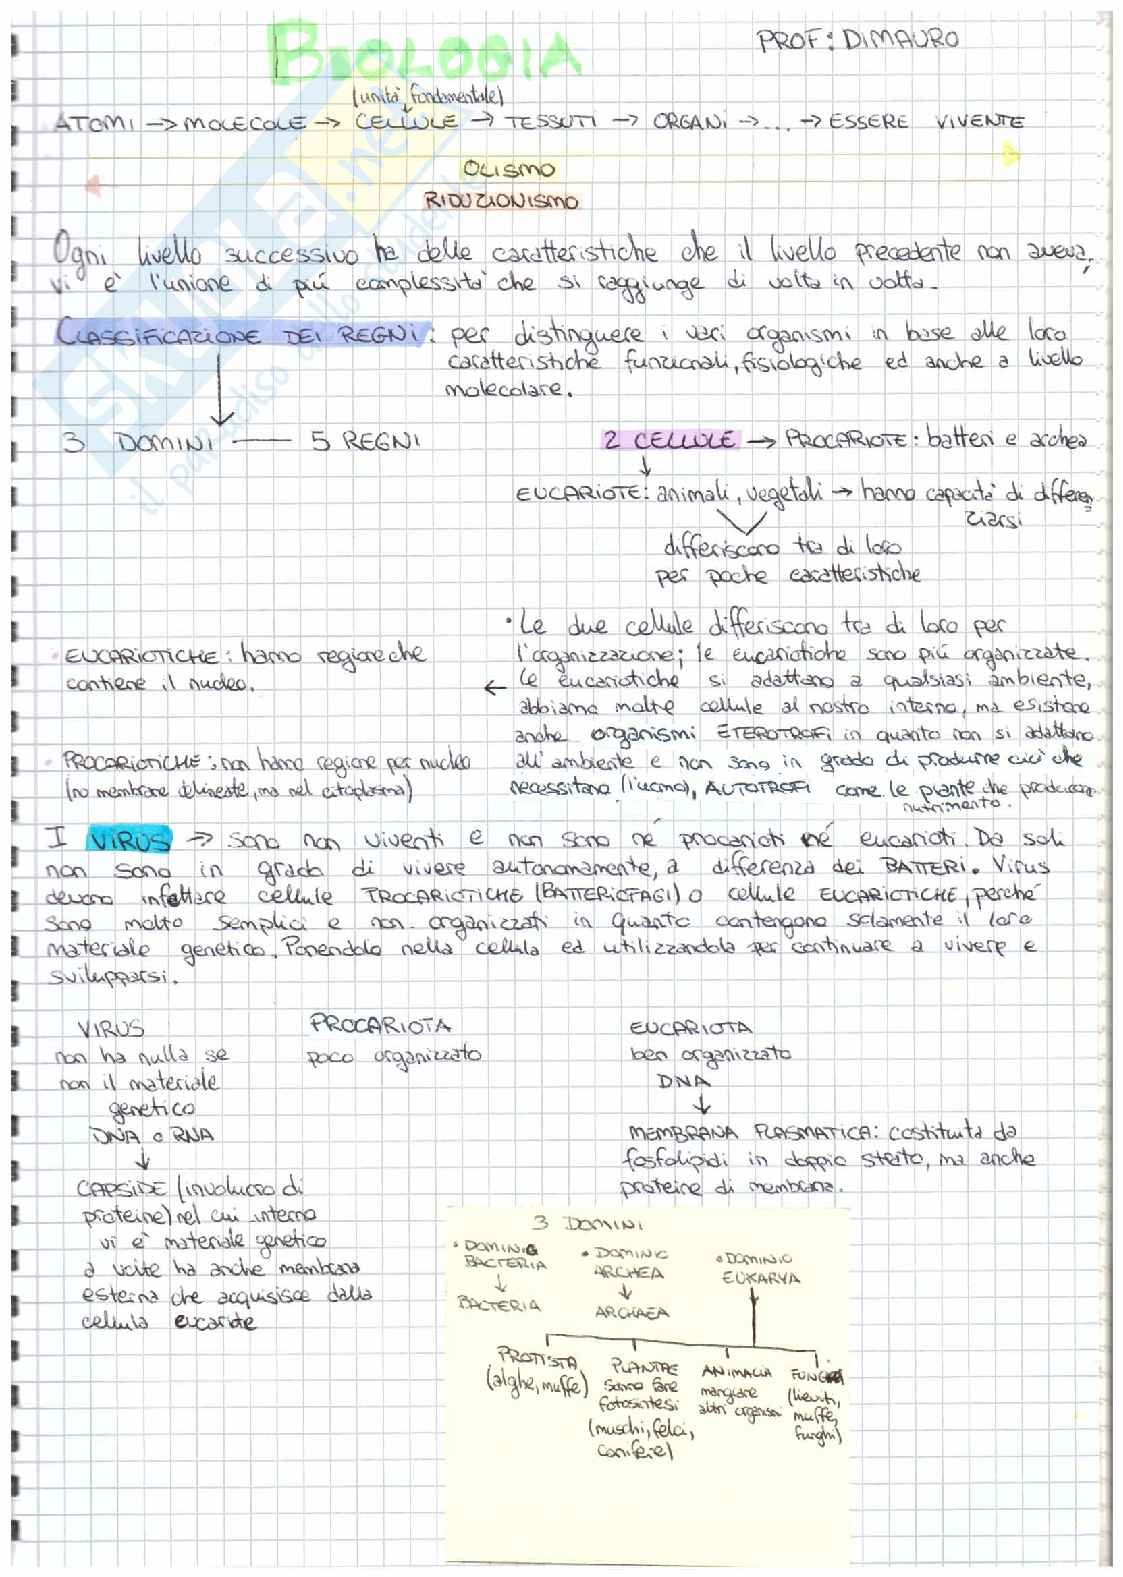 BIOLOGIA
PROF: DIMAURO
(unità fondamentale)
ATOMI → MOLECOLE → CELLULE → TESSUTI → ORGANI → ... → ESSERE VIVENTE
OLISMO
RIDUZIONISMO
Ogni livello successivo ha delle caratteristiche che il livello precedente non aveva,
vi è l'unione di più complessità che si raggiunge di volta in volta.
CLASSIFICAZIONE DEI REGNI: per distinguere i vari organismi in base alle loro
caratteristiche funzionali, fisiologiche ed anche a livello
molecolare.
3 DOMINI — 5 REGNI
2 CELLULE → PROCARIOTE: batteri e archea
EUCARIOTE: animali, vegetali → hanno capacità di differen
ziarsi
differiscono tra di loro
per poche caratteristiche
• Le due cellule differiscono tra di loro per
l'organizzazione; le eucariotiche sono più organizzate.
Le eucariotiche si adattano a qualsiasi ambiente,
abbiamo molte cellule al nostro interno, ma esistono
anche organismi ETEROTROFI in quanto non si adattano
all'ambiente e non sono in grado di produrre ciò che
necessitano (l'uomo), AUTOTROFI come le piante che producono
nutrimento.
• EUCARIOTICHE: hanno regione che
contiene il nucleo. ←
• PROCARIOTICHE: non hanno regione per nucleo
(no membrane delineate, ma nel citoplasma)
I VIRUS → sono non viventi e non sono né procarioti né eucarioti. Da soli
non sono in grado di vivere autonomamente, a differenza dei BATTERI. Virus
devono infettare cellule PROCARIOTICHE (BATTERIOFAGI) o cellule EUCARIOTICHE, perché
sono molto semplici e non organizzati in quanto contengono solamente il loro
materiale genetico. Ponendolo nella cellula ed utilizzandola per continuare a vivere e
svilupparsi.
VIRUS
non ha nulla se
non il materiale
genetico
DNA o RNA
↓
CAPSIDE (involucro di
proteine) nel cui interno
vi è materiale genetico
a volte ha anche membrana
esterna che acquisisce dalla
cellula eucariote
PROCARIOTA
poco organizzato
EUCARIOTA
ben organizzato
DNA
↓
MEMBRANA PLASMATICA: costituita da
fosfolipidi in doppio strato, ma anche
proteine di membrana.
3 DOMINI
• DOMINIO
BACTERIA
↓
BACTERIA
• DOMINIO
ARCHEA
↓
ARCHAEA
• DOMINIO
EUKARYA
PROTISTA
(alghe, muffe)
PLANTAE
sanno fare
fotosintesi
(muschi, felci,
conifere)
ANIMALIA
mangiare
altri organismi
FUNGHI
(lieviti,
muffe,
funghi)
skuola.net
il paradiso dello studente